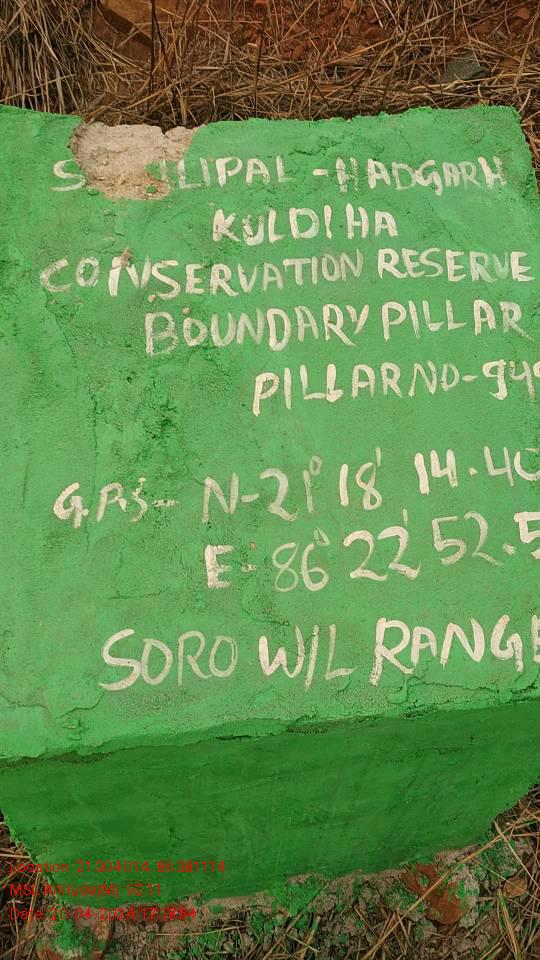 S LIPAL - HADGARH
KULDIHA
CONSERVATION RESERVE
BOUNDARY PILLAR
PILLAR NO-
G.P.S- N-21° 18'
E- 86° 22'
SORO W/L RANGE
Location: 21.304014, 86.381114
MSL Altitude(M): 92.11